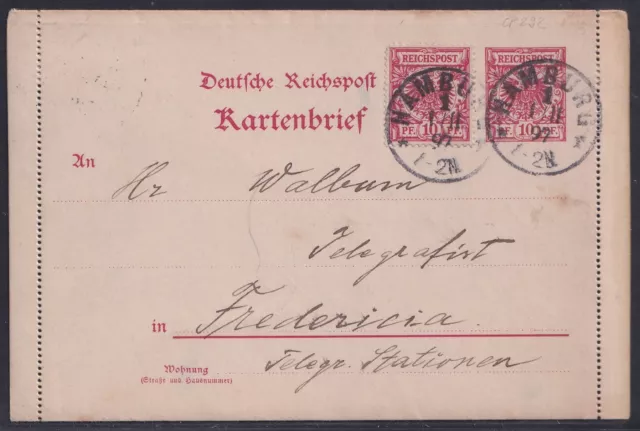 REICHSPOST REICHSPOST
PF. 10 PF. PF. 10 PF.
HAMBURG HAMBURG
1 1
97 97
1-2N. 1-2N.
Deutsche Reichspost
Kartenbrief
An
Hr Walbum
Telegrafist
in Fredericia.
Telegr. Stationen
Wohnung
(Straße und Hausnummer)